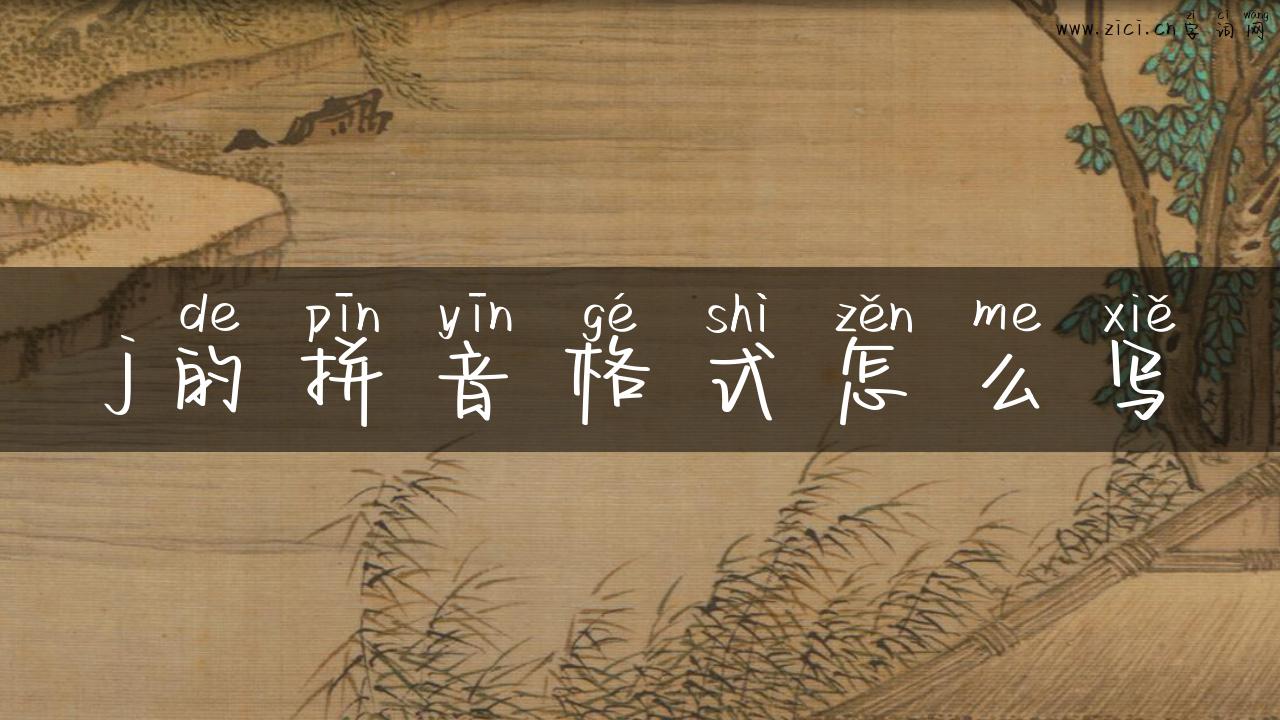 zì cí wǎng
www.zici.cn字词网
de pīn yīn gé shì zěn me xiě
j的拼音格式怎么写